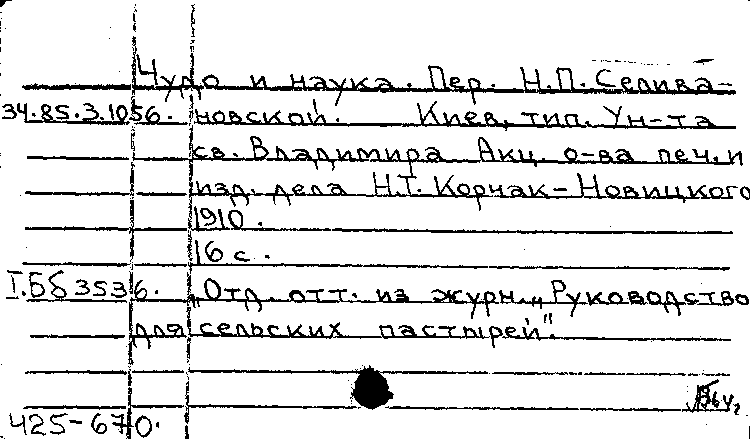 Чудо и наука. Пер. Н.П. Селива-
34.85.3.1056. новской. Киев, тип. Ун-та
св. Владимира Акц. о-ва печ. и
изд. дела Н.Т. Корчак-Новицкого
1910.
16 с.
I.Бб 3536. "Отд. отт. из журн. "Руководство
для сельских пастырей".
425-670.